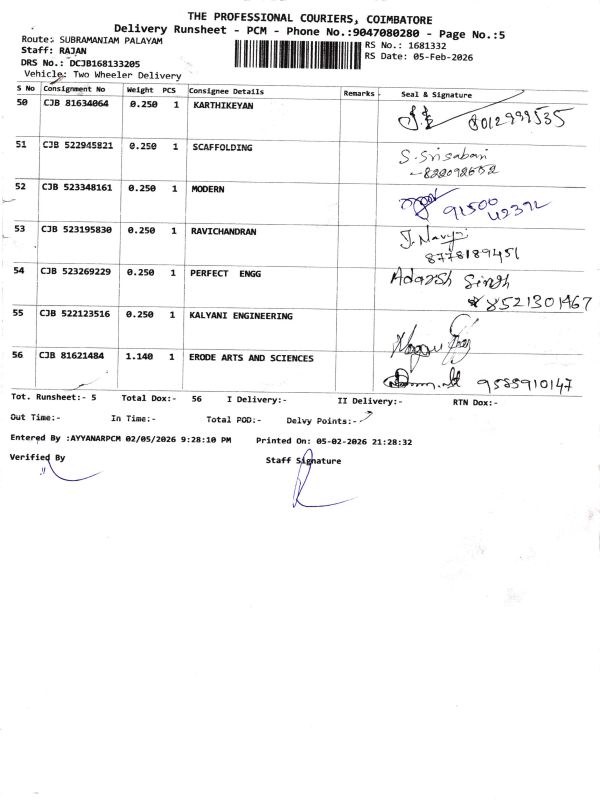 THE PROFESSIONAL COURIERS, COIMBATORE
Delivery Runsheet - PCM - Phone No.:9047080280 - Page No.:5
Route: SUBRAMANIAM PALAYAM
RS No.: 1681332
Staff: RAJAN
RS Date: 05-Feb-2026
DRS No.: DCJB168133205
Vehicle: Two Wheeler Delivery
S No Consignment No Weight PCS Consignee Details Remarks Seal & Signature
50 CJB 81634064 0.250 1 KARTHIKEYAN 8012999535
51 CJB 522945821 0.250 1 SCAFFOLDING S. Srisabari
52 CJB 523348161 0.250 1 MODERN 91500
42392
53 CJB 523195830 0.250 1 RAVICHANDRAN
8778189451
54 CJB 523269229 0.250 1 PERFECT ENGG Adarsh Singh
8521301467
55 CJB 522123516 0.250 1 KALYANI ENGINEERING
56 CJB 81621484 1.140 1 ERODE ARTS AND SCIENCES
9585910147
Tot. Runsheet:- 5 Total Dox:- 56 I Delivery:- II Delivery:- RTN Dox:-
Out Time:- In Time:- Total POD:- Delvy Points:-
Entered By :AYYANARPCM 02/05/2026 9:28:10 PM Printed On: 05-02-2026 21:28:32
Verified By Staff Signature